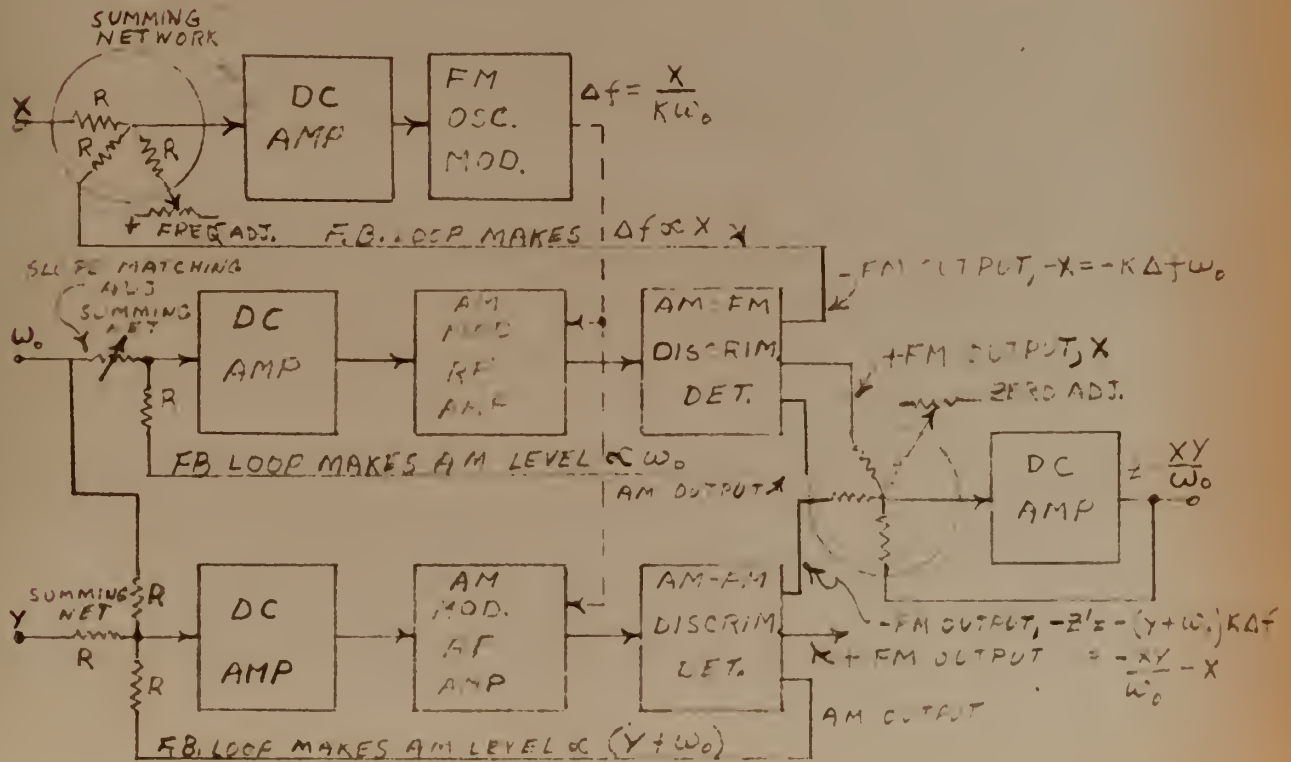 SUMMING
NETWORK
X
R
R
R
DC
AMP
FM
OSC.
MOD.
Δf = X / Kω₀
+ FREQ ADJ.
F.B. LOOP MAKES Δf ∝ X
SLOPE MATCHING
ADJ
SUMMING
NET
ω₀
R
DC
AMP
AM
MOD
RF
AMP
AM-FM
DISCRIM
DET.
-FM OUTPUT, -X = -KΔfω₀
+FM OUTPUT, X
ZERO ADJ.
F.B. LOOP MAKES AM LEVEL ∝ ω₀
AM OUTPUT
DC
AMP
XY / ω₀
Y
SUMMING
NET
R
R
R
DC
AMP
AM
MOD.
RF
AMP
AM-FM
DISCRIM
DET.
-FM OUTPUT, -Z' = -(Y + ω₀)KΔf
+ FM OUTPUT = -XY / ω₀ - X
AM OUTPUT
F.B. LOOP MAKES AM LEVEL ∝ (Y + ω₀)